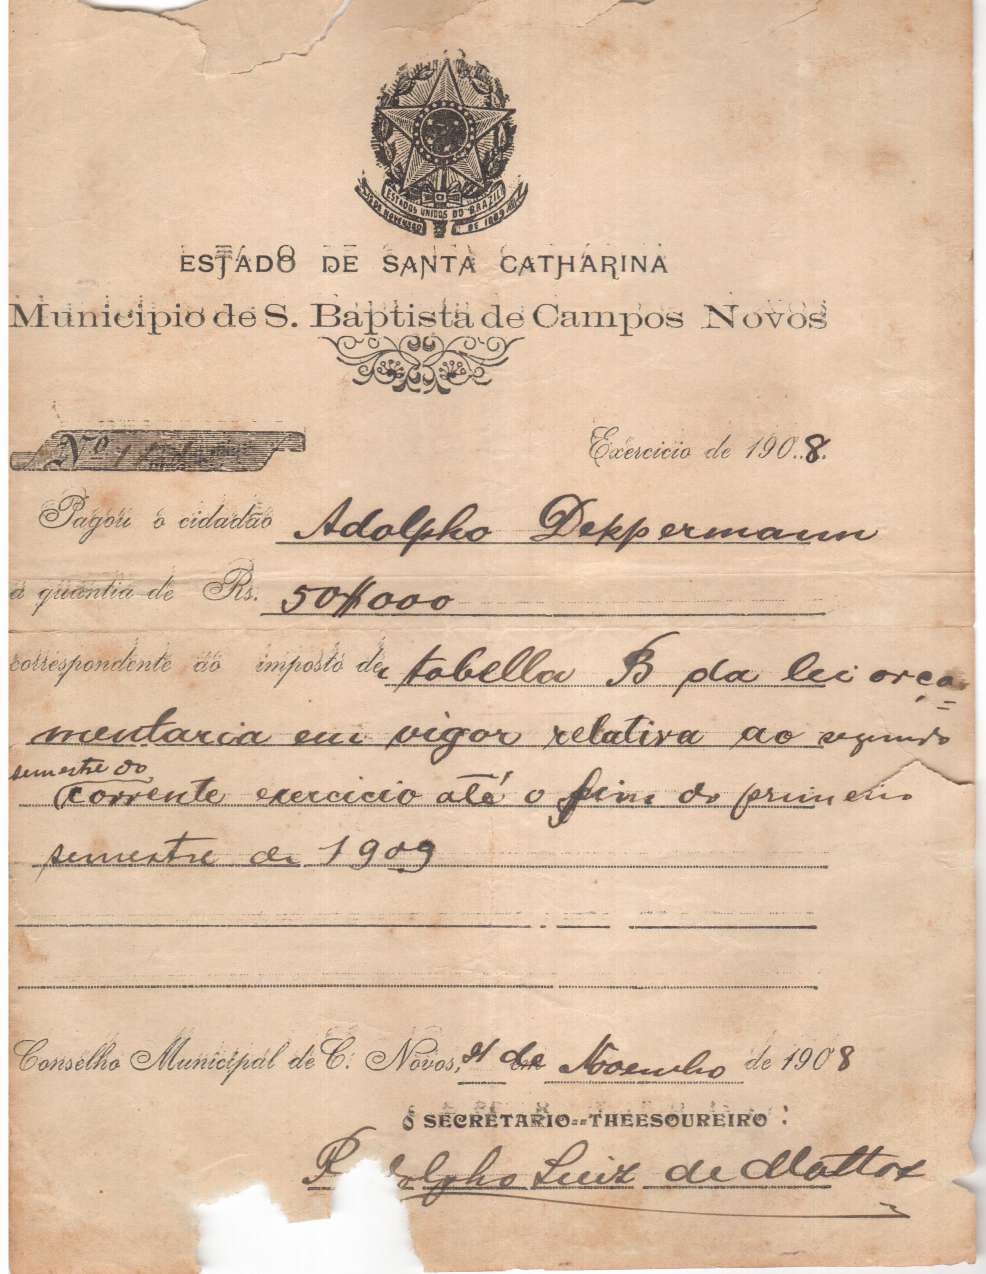 ESTADOS UNIDOS DO BRAZIL
15 DE NOVEMBRO DE 1889
ESTADO DE SANTA CATHARINA
Municipio de S. Baptista de Campos Novos
Nº
Exercicio de 1908.
Pagou o cidadão Adolpho Deppermann
a quantia de Rs. 50$000
correspondente ao imposto de tabella B da lei orça=
mentaria em vigor relativa ao segundo
semestre do
corrente exercicio até o fim do primeiro
semestre de 1909
Conselho Municipal de C. Novos, 21 de Novembro de 1908
O SECRETARIO--THEESOUREIRO
Rodolpho Luiz de Mattos